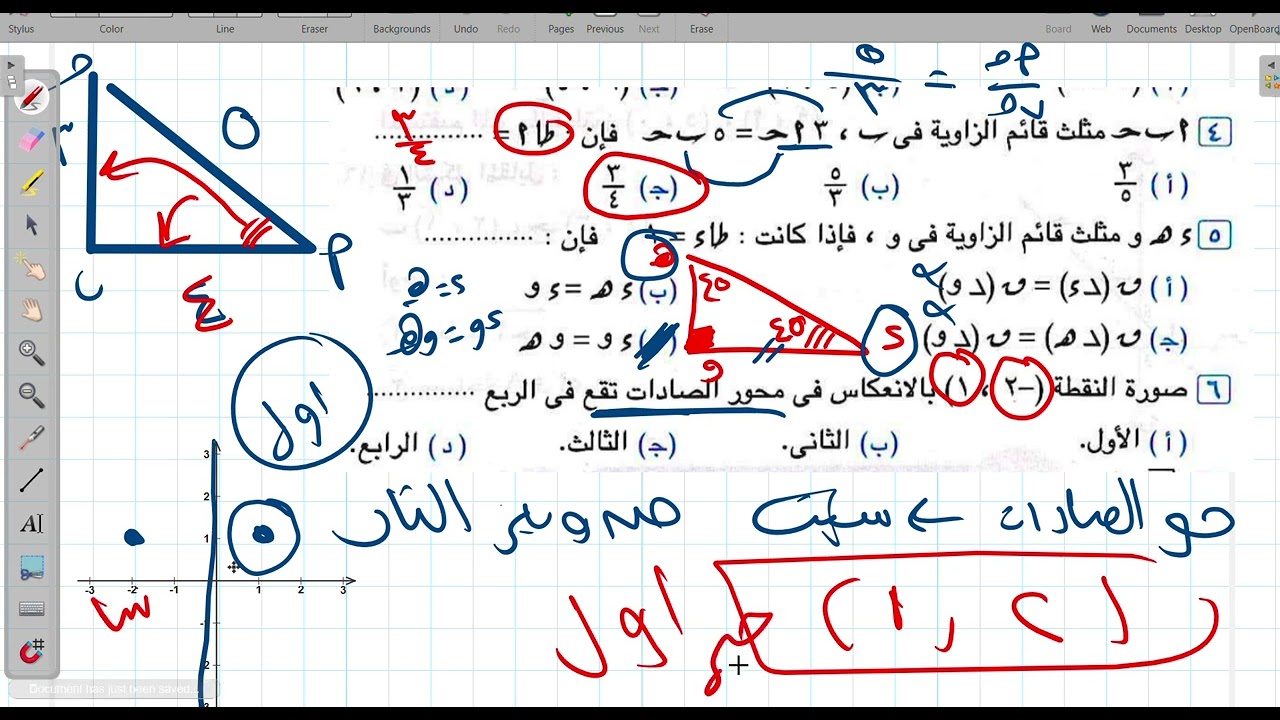 Stylus Color Line Eraser Backgrounds Undo Redo Pages Previous Next Erase Board Web Documents Desktop OpenBoard
٤ ا ب ح مثلث قائم الزاوية فى ب ، ٣ ا ح = ٥ ب ح فإن طا ا = ............
٣/٤
(أ) ٣/٥ (ب) ٥/٣ (ج) ٣/٤ (د) ١/٣
٥ ء ه و مثلث قائم الزاوية فى و ، فإذا كانت : طاء = ١ فإن : ..............
(أ) ق (د ء) = ق (د و) (ب) ء ه = ء و
(ج) ق (د ه) = ق (د و) ء و = و ه
٤٥ ٤٥
٦ صورة النقطة (−٢ ، ١) بالانعكاس فى محور الصادات تقع فى الربع ..............
(أ) الأول. (ب) الثانى. (ج) الثالث. (د) الرابع.
اول
الصادات ← سيبت صوير التار
(٢ , ١) اول
3
2
1
-3 -2 -1 1 2 3
Document has just been saved...